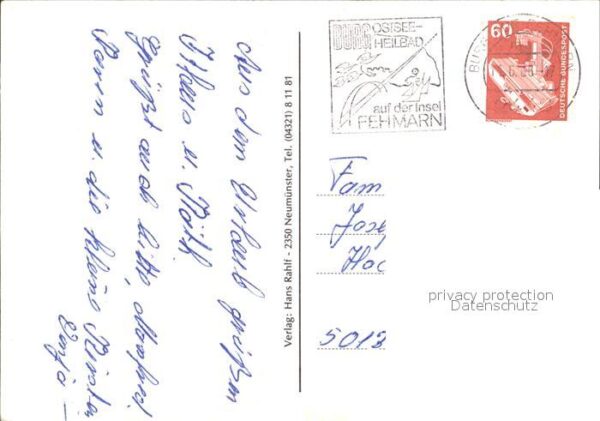 Aus dem Urlaub grüßen
Klaus u. Käth.
Grüßt auch bitte, Manfred
Karin u. die kleine Kirsten
Verlag: Hans Rahlf - 2350 Neumünster, Tel. (04321) 8 11 81
BURG OSTSEE-
HEILBAD
auf der Insel
FEHMARN
60
DEUTSCHE BUNDESPOST
Fam
Jose
Hoc
5013
privacy protection
Datenschutz